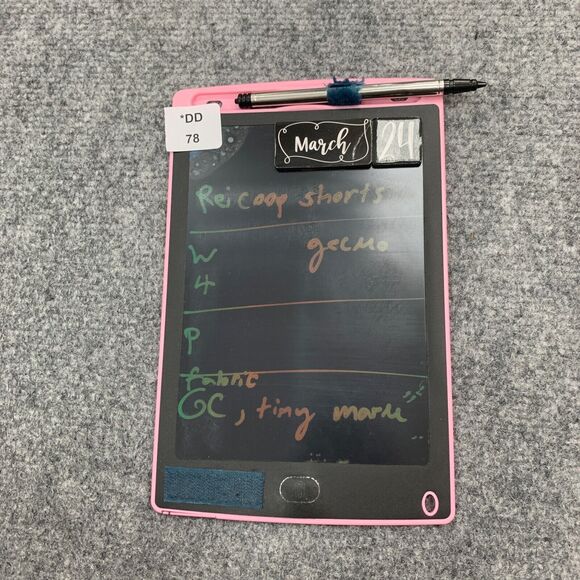 *DD
78
March 24
Rei coop shorts
gecko
W
4
P
fabric
GC, tiny mark